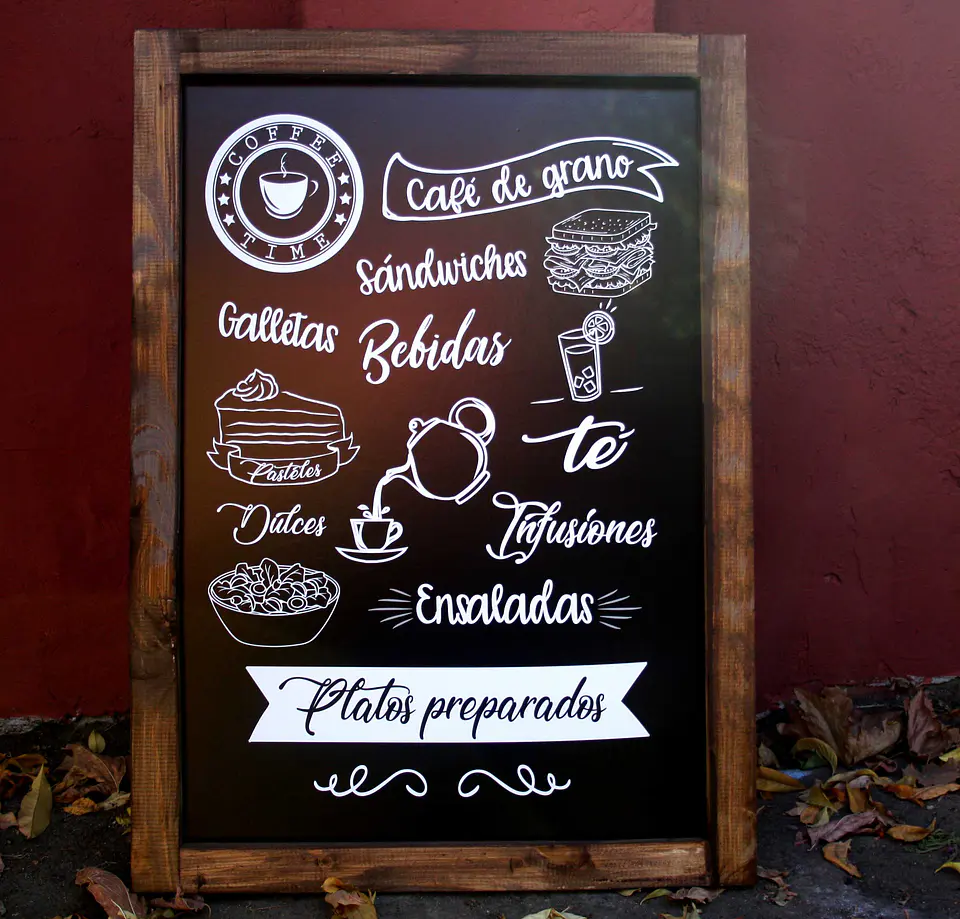 COFFEE
TIME
Café de grano
Sándwiches
Galletas
Bebidas
té
Pasteles
Dulces
Infusiones
Ensaladas
Platos preparados